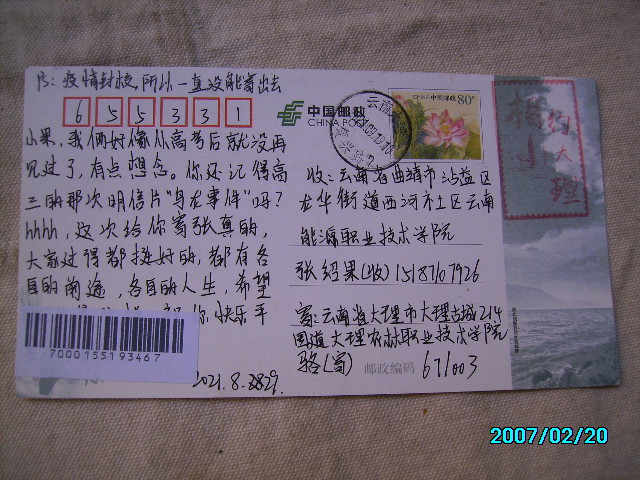 PS: 疫情封校,所以一直没能寄出去
655331
中国邮政
CHINA POST
CHINA 中国邮政 80分
云南
小果,我俩好像从高考后就没再
见过了,有点想念。你还记得高
三的那次明信片"乌龙事件"吗?
hhhh,这次给你寄张真的,
大家过得都挺好的,都有各
自的前途,各自的人生,希望
你快乐平
7000155193467
2021.8.29
收:云南省曲靖市沾益区
龙华街道西河社区云南
能源职业技术学院
张绍果(收)15187107926
寄:云南省大理市大理古城214
国道大理农林职业技术学院
骆(寄)
邮政编码 671003
约
大
理
2007/02/20